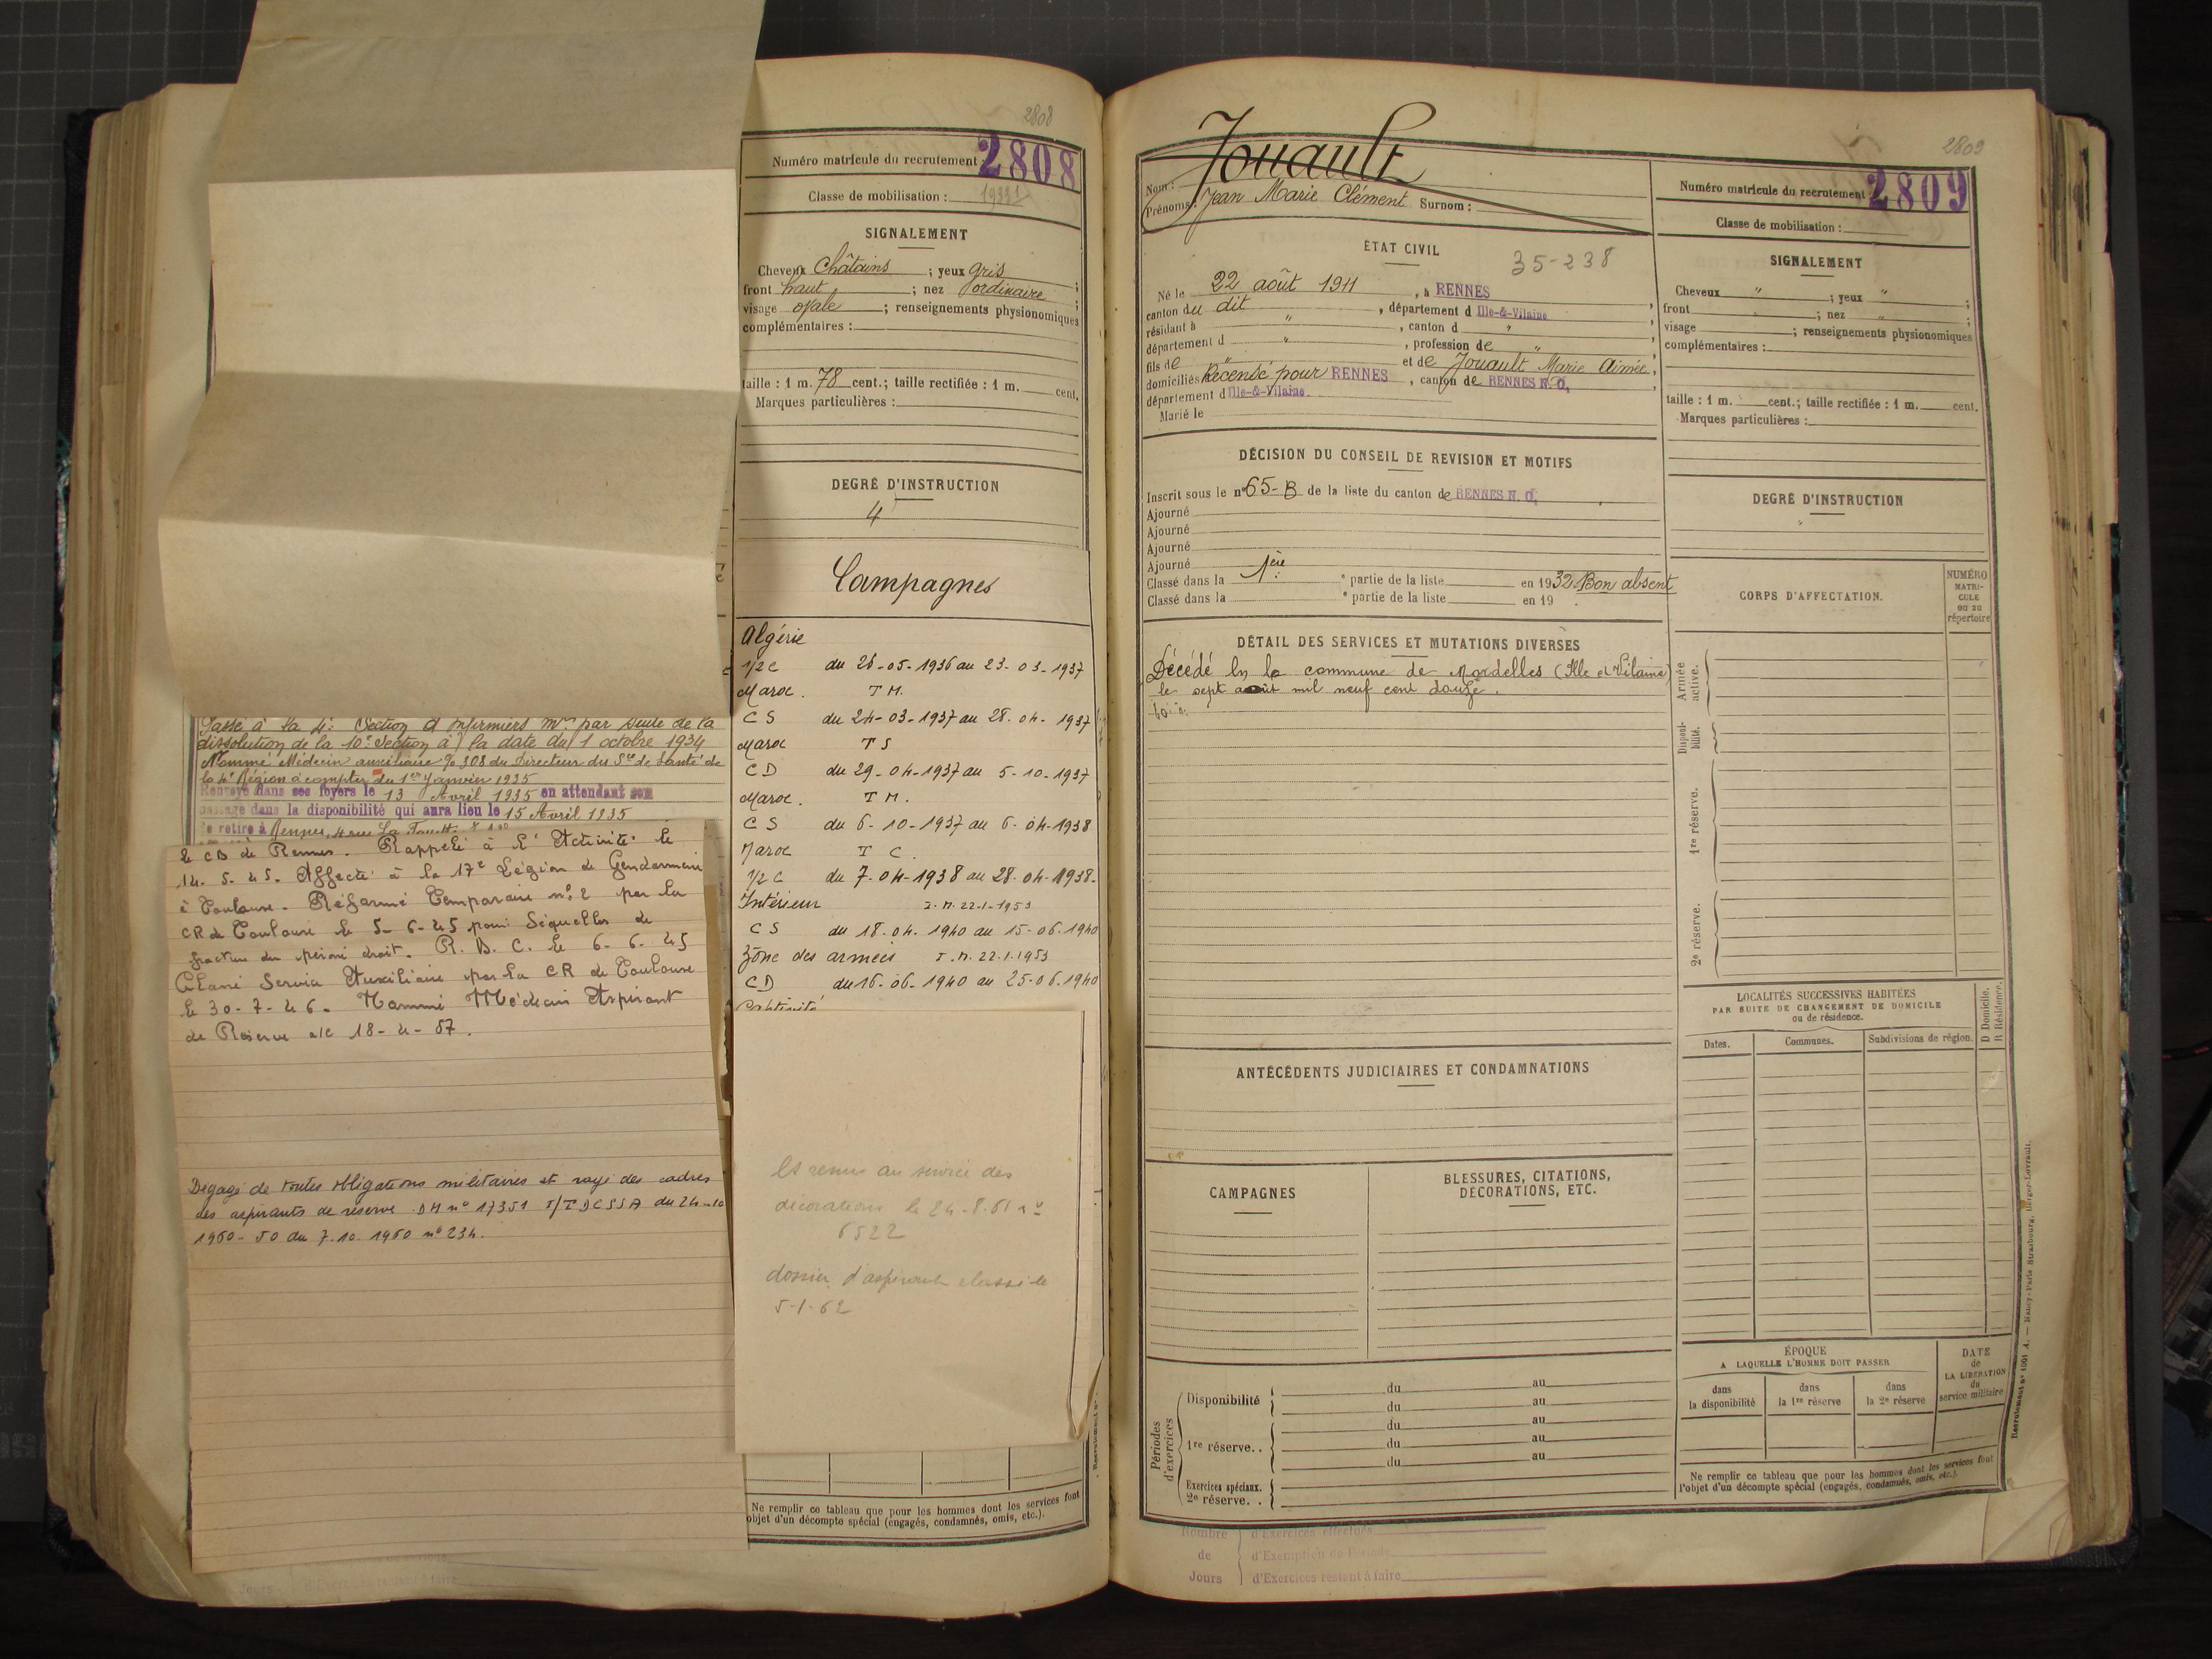 2808
Numéro matricule du recrutement : 2808
Classe de mobilisation :
SIGNALEMENT
Cheveux Châtains ; yeux gris
front haut ; nez ordinaire ;
visage ovale ; renseignements physionomiques
complémentaires :
taille : 1 m. 78 cent.; taille rectifiée : 1 m. cent.
Marques particulières :
DEGRÉ D'INSTRUCTION
4
Campagnes
Algérie
1/2 C du 26-05-1936 au 23-03-1937
Maroc. T M.
C S du 24-03-1937 au 28-04-1937
Maroc T S
C D du 29-04-1937 au 5-10-1937
Maroc. T M.
C S du 6-10-1937 au 6-04-1938
Maroc T C.
1/2 C du 7-04-1938 au 28-04-1938.
Intérieur I. M. 22-1-1953
C S du 18.04.1940 au 15-06.1940
Zône des armées I. M. 22.1.1953
C D du 16-06-1940 au 25-06.1940
Captivité
Passé à la 4e Section d'Infirmiers mres par suite de la
dissolution de la 10e Section à la date du 1 octobre 1934
Nommé Médecin auxiliaire 308 du Directeur du Sce de Santé de
la 4e Région à compter du 1er Janvier 1935
Renvoyé dans ses foyers le 13 Avril 1935 en attendant son
passage dans la disponibilité qui aura lieu le 15 Avril 1935
Se retire à Rennes, 4 rue La
le CB de Rennes. Rappelé à l'Activité le
14-5-45. Affecté à la 17e Légion de Gendarmerie
à Toulouse. Réformé Temporaire n° 2 par la
CR de Toulouse le 5-6-45 pour Séquelles de
fracture du péroné droit. R. D. C. le 6-6-45
Classé Service Auxiliaire par la CR de Toulouse
le 30-7-46. Nommé Médecin Aspirant
de Réserve a/c 18-4-57.
Dégagé de toutes obligations militaires et rayé des cadres
des aspirants de réserve. DM n° 17351 T/TDCSSA du 24-10
1960 - JO du 7.10.1960 n° 234.
ES remis au service des
décorations le 24-8-61 n°
6522
dossier d'aspirant classé le
5-1-62
Ne remplir ce tableau que pour les hommes dont les services font
l'objet d'un décompte spécial (engagés, condamnés, omis, etc.).
Jours d'Exercices restant à faire
2809
Nom : Jouault
Prénoms : Jean Marie Clément Surnom :
Numéro matricule du recrutement : 2809
Classe de mobilisation :
ÉTAT CIVIL
35-238
Né le 22 août 1911, à RENNES,
canton du dit, département d Ille-&-Vilaine,
résidant à ", canton d ",
département d ", profession de ",
fils de " et de Jouault Marie Aimée,
domiciliés Recensé pour RENNES, canton de RENNES N. O.,
département d Ille-&-Vilaine.
Marié le
SIGNALEMENT
Cheveux " ; yeux " ;
front " ; nez " ;
visage ; renseignements physionomiques
complémentaires :
taille : 1 m. cent.; taille rectifiée : 1 m. cent.
Marques particulières :
DÉCISION DU CONSEIL DE REVISION ET MOTIFS
Inscrit sous le n° 65-B de la liste du canton de RENNES N. O.
Ajourné
Ajourné
Ajourné
Ajourné
Classé dans la 1ère partie de la liste en 1932 Bon absent
Classé dans la e partie de la liste en 19
DEGRÉ D'INSTRUCTION
"
CORPS D'AFFECTATION.
NUMÉRO MATRICULE ou au répertoire
DÉTAIL DES SERVICES ET MUTATIONS DIVERSES
Décédé en la commune de Mordelles (Ille et Vilaine)
le sept août mil neuf cent douze.
Armée active.
Disponibilité.
1re réserve.
2e réserve.
LOCALITÉS SUCCESSIVES HABITÉES
PAR SUITE DE CHANGEMENT DE DOMICILE
ou de résidence.
D Domicile.
R Résidence.
Dates. Communes. Subdivisions de région.
ANTÉCÉDENTS JUDICIAIRES ET CONDAMNATIONS
CAMPAGNES
BLESSURES, CITATIONS,
DÉCORATIONS, ETC.
ÉPOQUE
A LAQUELLE L'HOMME DOIT PASSER
dans la disponibilité
dans la 1re réserve
dans la 2e réserve
DATE de LA LIBÉRATION du service militaire
Périodes d'exercices
Disponibilité du au
du au
1re réserve.. du au
du au
du au
Exercices spéciaux.
2e réserve. .
Ne remplir ce tableau que pour les hommes dont les services font
l'objet d'un décompte spécial (engagés, condamnés, omis, etc.).
Nombre de Jours
d'Exercices effectués
d'Exemption de Période
d'Exercices restant à faire
Recrutement n° 1001 A. — Nancy-Paris-Strasbourg, Berger-Levrault.